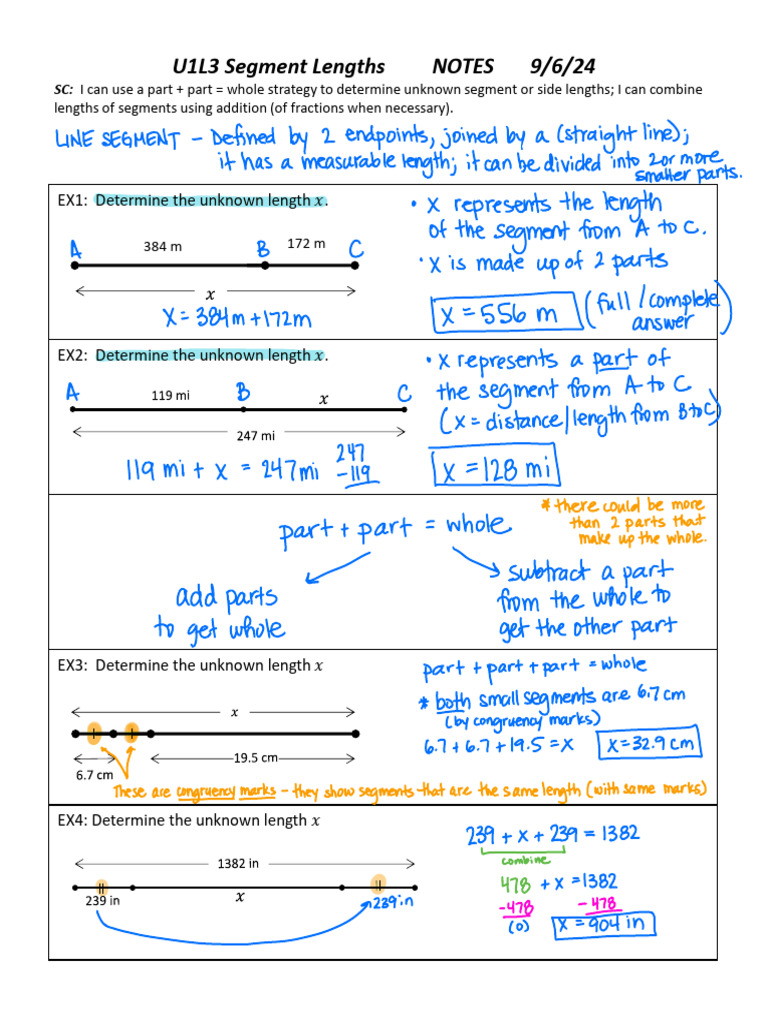 U1L3 Segment Lengths NOTES 9/6/24
SC: I can use a part + part = whole strategy to determine unknown segment or side lengths; I can combine
lengths of segments using addition (of fractions when necessary).
LINE SEGMENT – Defined by 2 endpoints, joined by a (straight line);
it has a measurable length; it can be divided into 2 or more
smaller parts.
EX1: Determine the unknown length x.
A 384 m B 172 m C
x
x = 384m + 172m
• x represents the length
of the segment from A to C.
• x is made up of 2 parts
x = 556 m (full/complete
answer)
EX2: Determine the unknown length x.
A 119 mi B x C
247 mi
119 mi + x = 247mi
247
-119
• x represents a part of
the segment from A to C
(x = distance/length from B to C)
x = 128 mi
part + part = whole
* there could be more
than 2 parts that
make up the whole.
add parts
to get whole
subtract a part
from the whole to
get the other part
EX3: Determine the unknown length x
x
19.5 cm
6.7 cm
part + part + part = whole
* both small segments are 6.7 cm
(by congruency marks)
6.7 + 6.7 + 19.5 = x x = 32.9 cm
These are congruency marks – they show segments that are the same length (with same marks)
EX4: Determine the unknown length x
1382 in
239 in x 239 in
239 + x + 239 = 1382
combine
478 + x = 1382
-478 -478
(0) x = 904 in